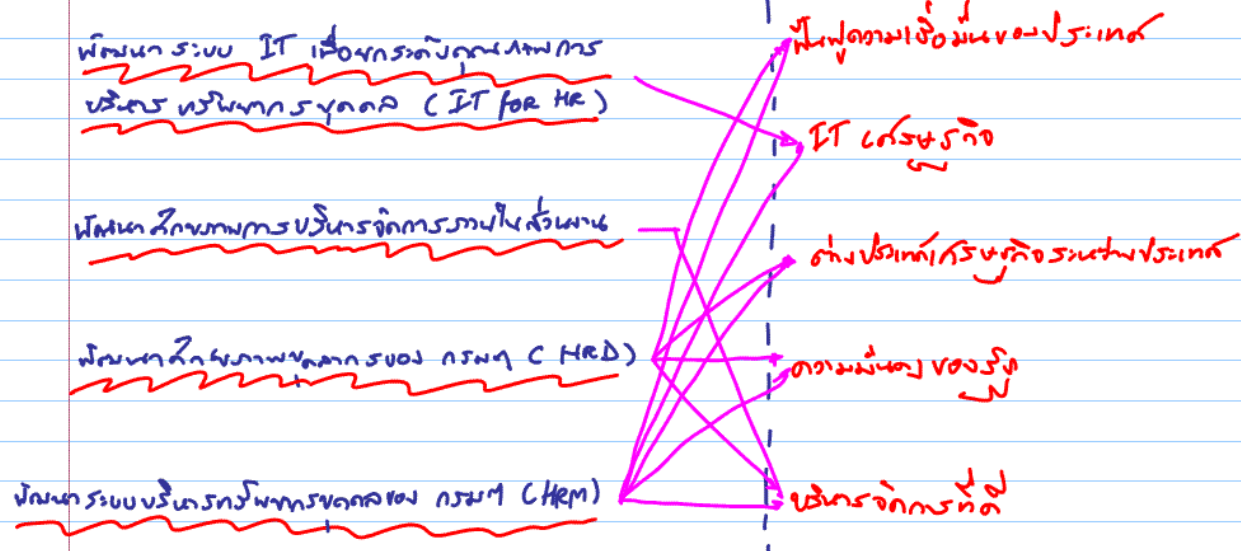 พัฒนาระบบ IT เพื่อยกระดับคุณภาพการ
บริหารทรัพยากรบุคคล (IT for HR)
พัฒนาศักยภาพการบริหารจัดการภายในส่วนงาน
พัฒนาศักยภาพบุคลากรของ กรมฯ (HRD)
พัฒนาระบบบริหารทรัพยากรบุคคลของ กรมฯ (HRM)
ฟื้นฟูความเชื่อมั่นของประเทศ
IT เศรษฐกิจ
ต่างประเทศเศรษฐกิจระหว่างประเทศ
ความมั่นคงของรัฐ
บริหารจัดการที่ดี